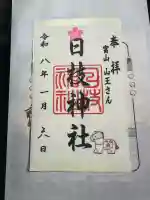 奉拝
富山 山王さん
日枝神社
令和八年一月六日